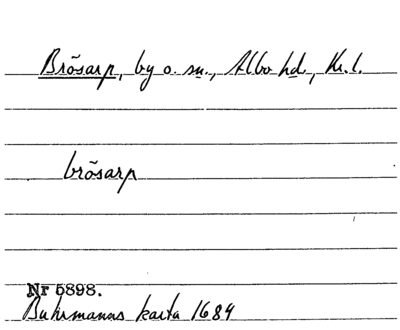 Brösarp, by o. sn., Albo hd., Kr. l.
brösarp
Nr 5898.
Buhrmanns karta 1684